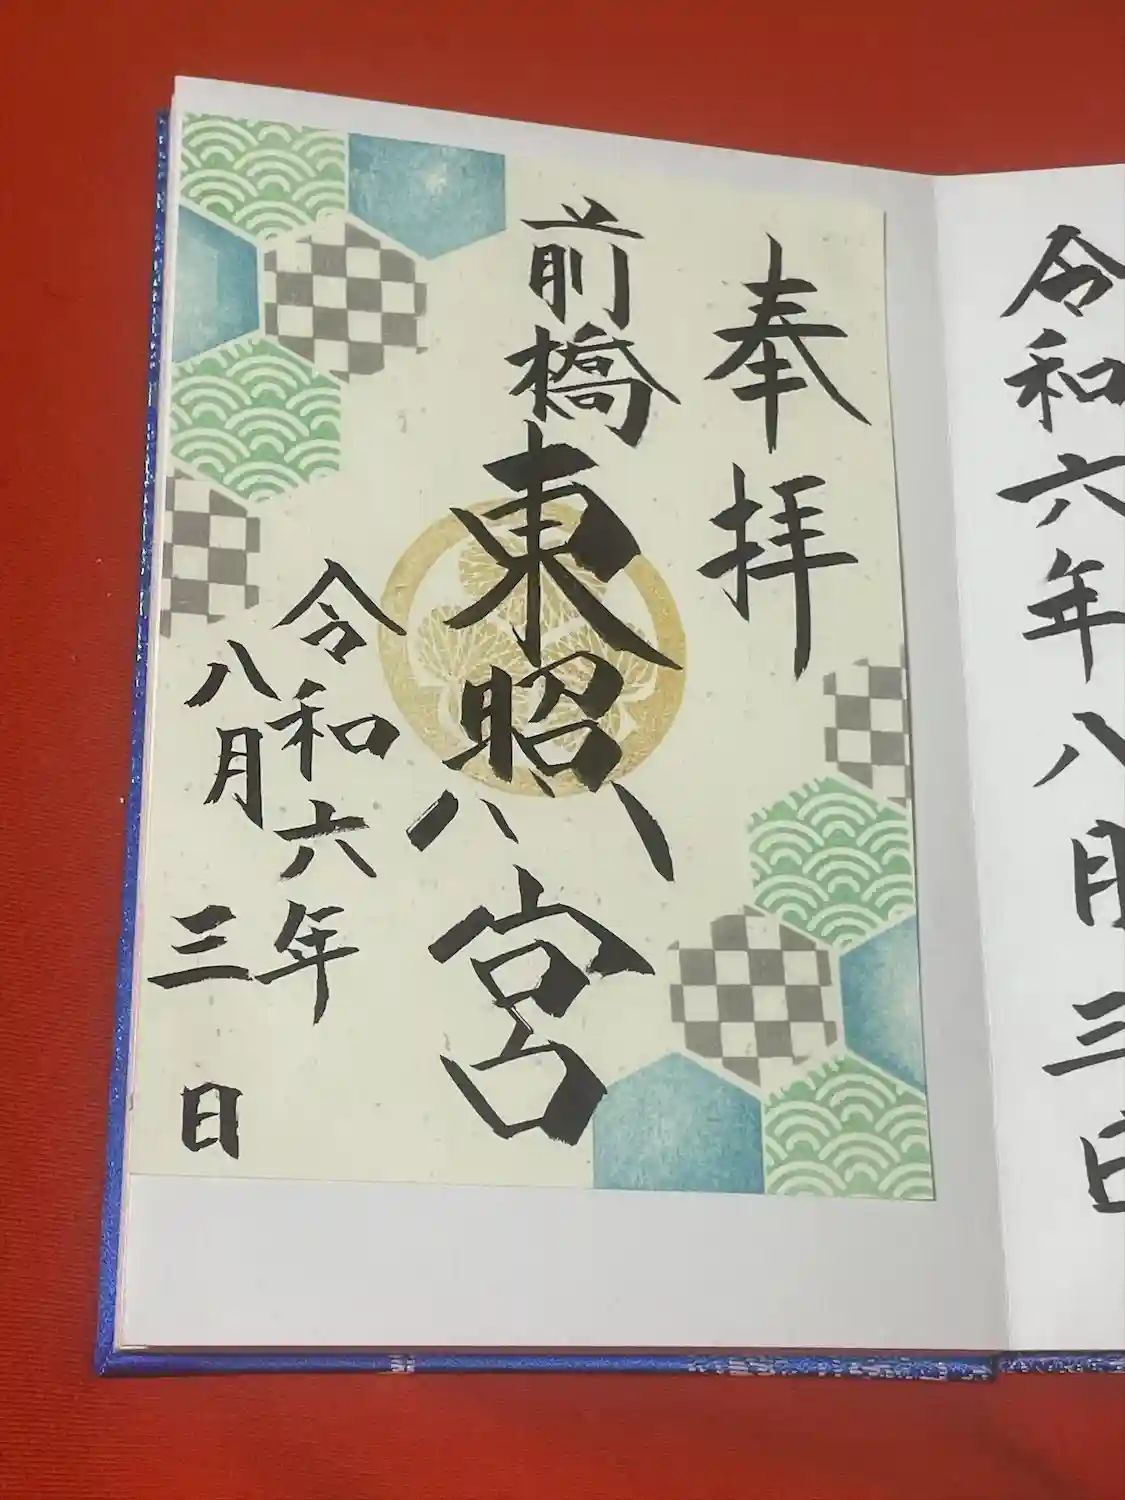 令和六年八月三日
奉拝
前橋東照宮
令和六年
八月三日